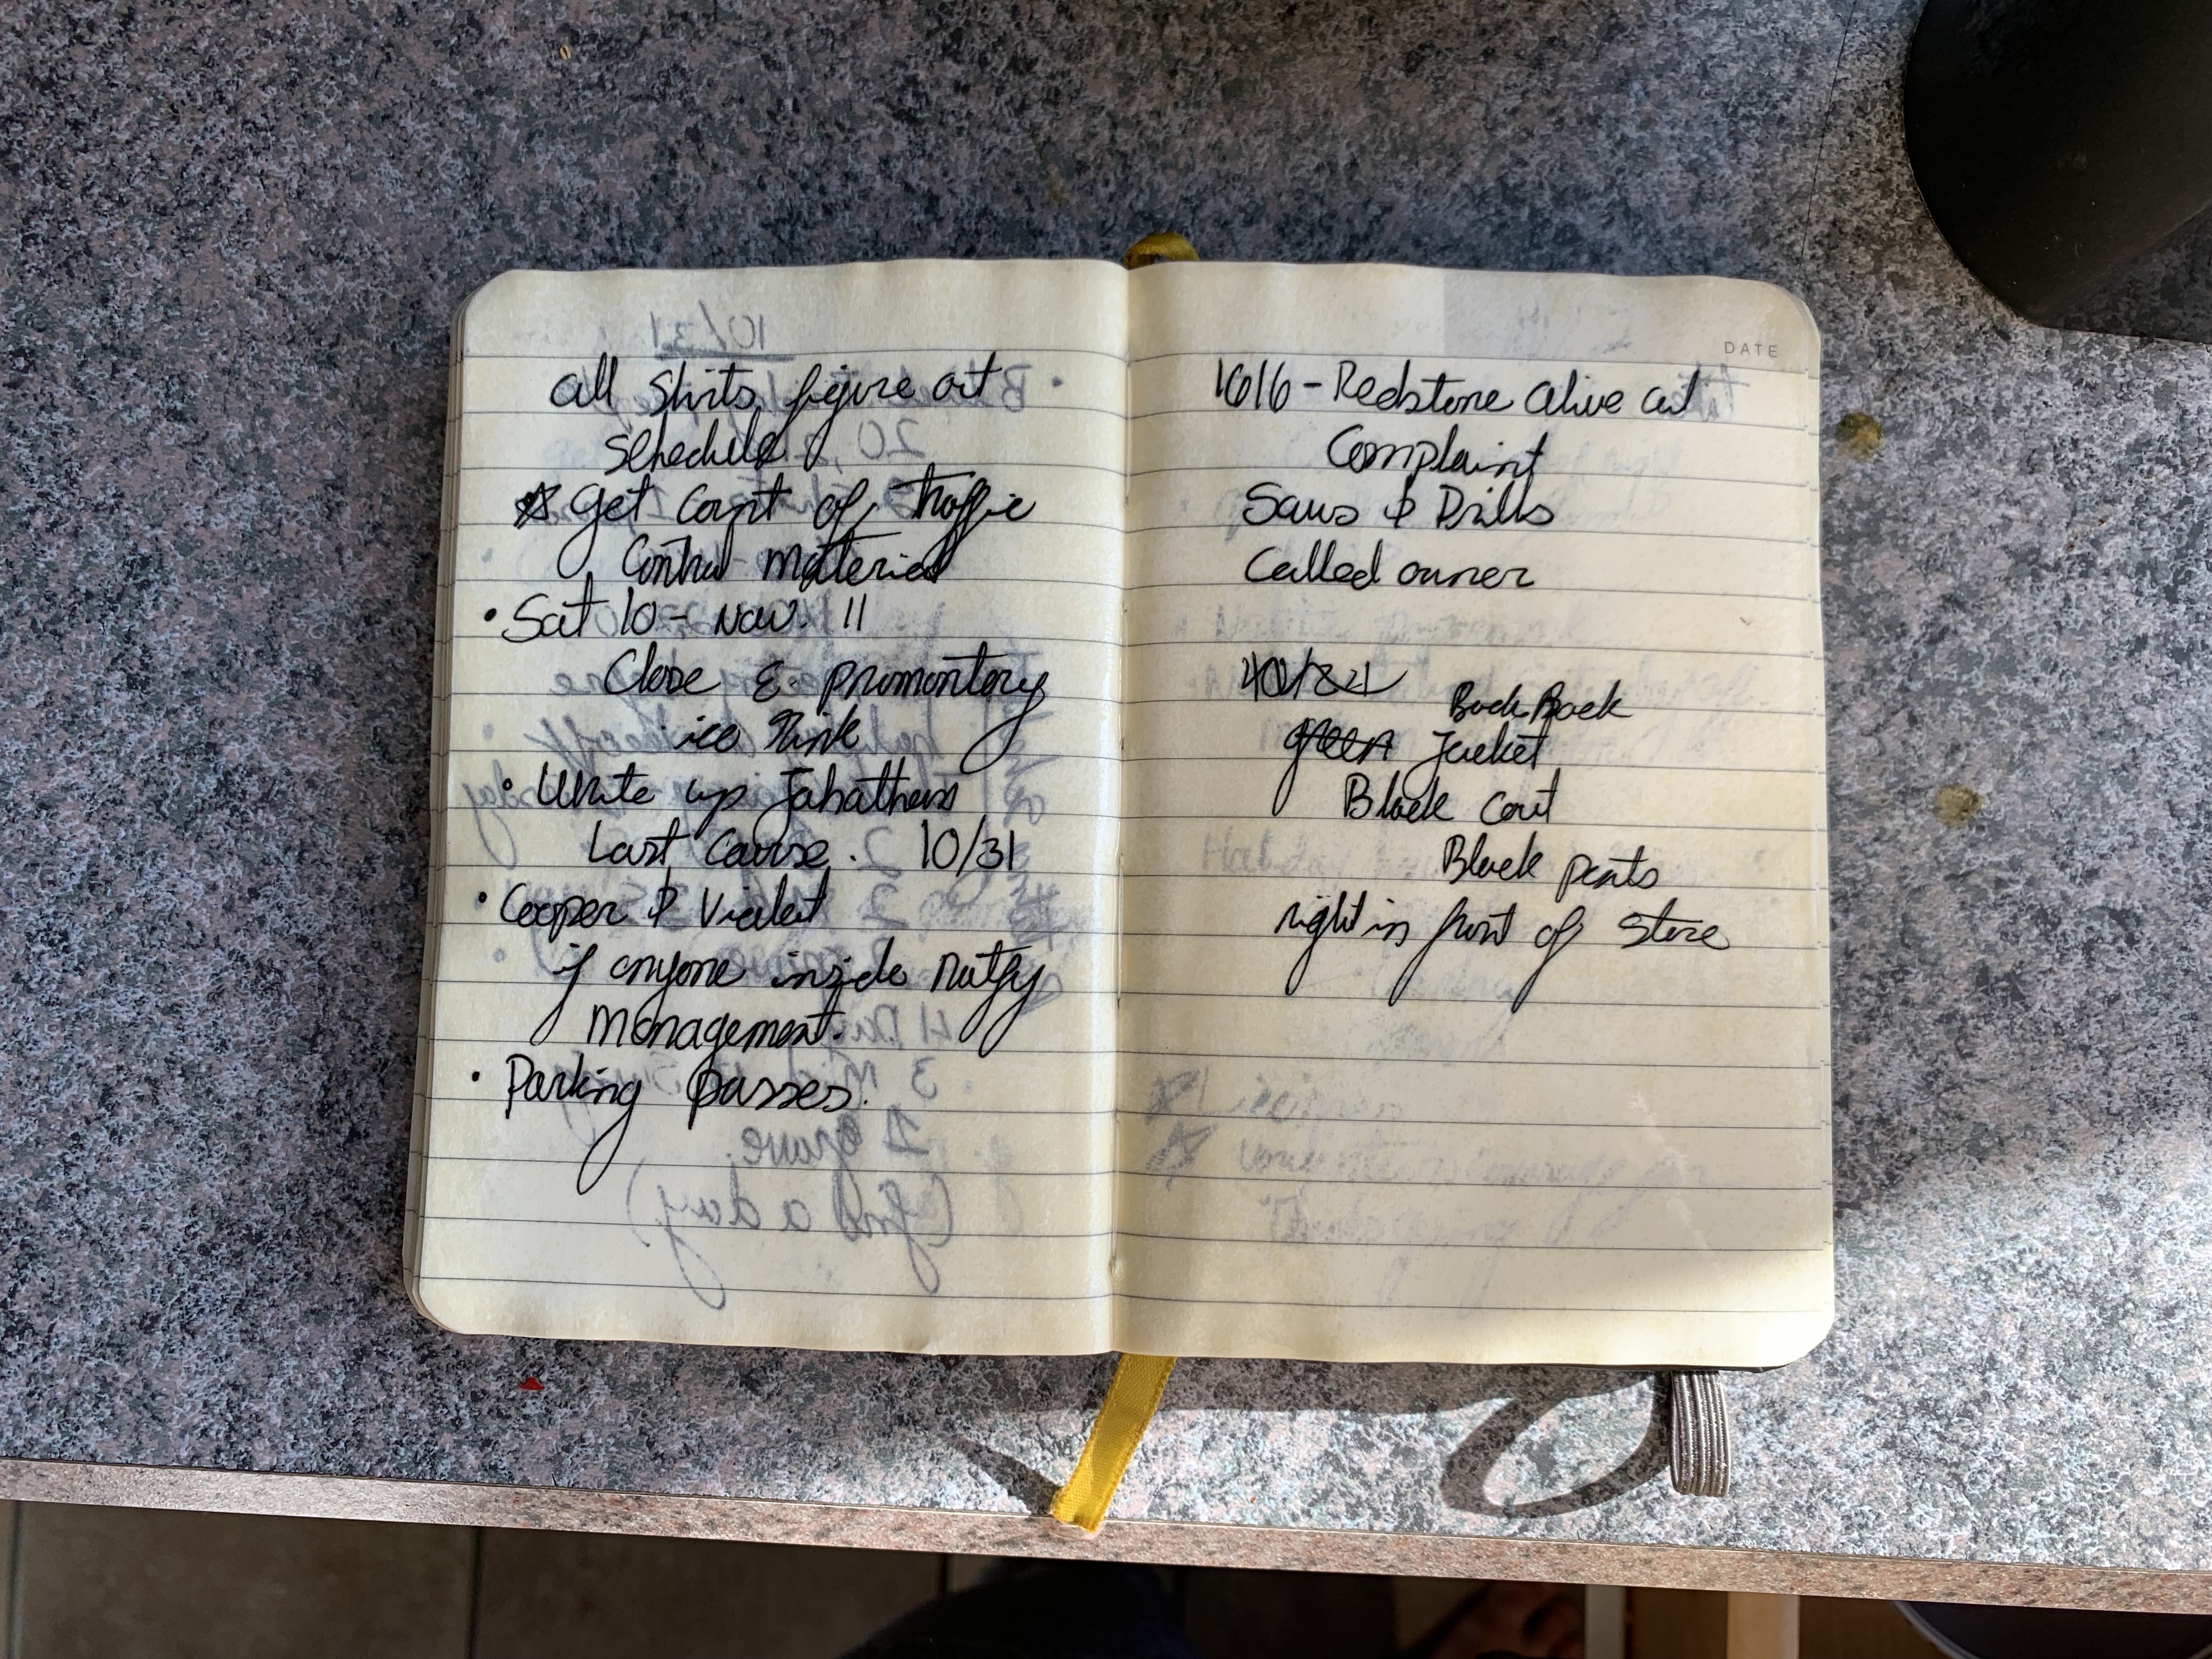 all Shirts figure out
Schedule
☆ get Count of traffic
Control material
• Sat 10 - Nov. 11
Close E. promontory
ice Rink
• Write up
Last Cause. 10/31
• Cooper & Violet
if anyone inside notfy
management.
• Parking passes.
DATE
1616 - Redstone Olive
Complaint
Saws & Drills
Called owner
BackPack
green Jacket
Black Coat
Black pants
right in front of Store